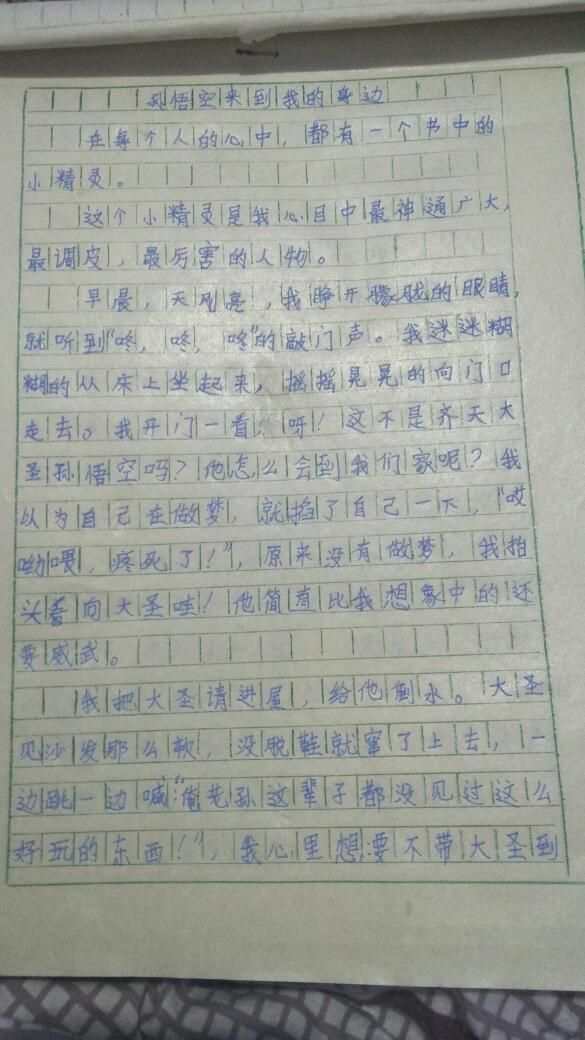 孙悟空来到我的身边
在每个人的心中，都有一个书中的
小精灵。
这个小精灵是我心目中最神通广大，
最调皮，最厉害的人物。
早晨，天刚亮，我睁开朦胧的眼睛，
就听到“咚，咚，咚”的敲门声。我迷迷糊
糊的从床上坐起来，摇摇晃晃的向门口
走去。我开门一看，呀！这不是齐天大
圣孙悟空吗？他怎么会到我们家呢？我
以为自己在做梦，就掐了自己一下，“哎
呦喂，疼死了！”，原来没有做梦，我抬
头看向大圣哇！他简直比我想象中的还
要威武。
我把大圣请进屋，给他倒水。大圣
见沙发那么软，没脱鞋就窜了上去，一
边跳一边喊“俺老孙这辈子都没见过这么
好玩的东西！”，我心里想要不带大圣到